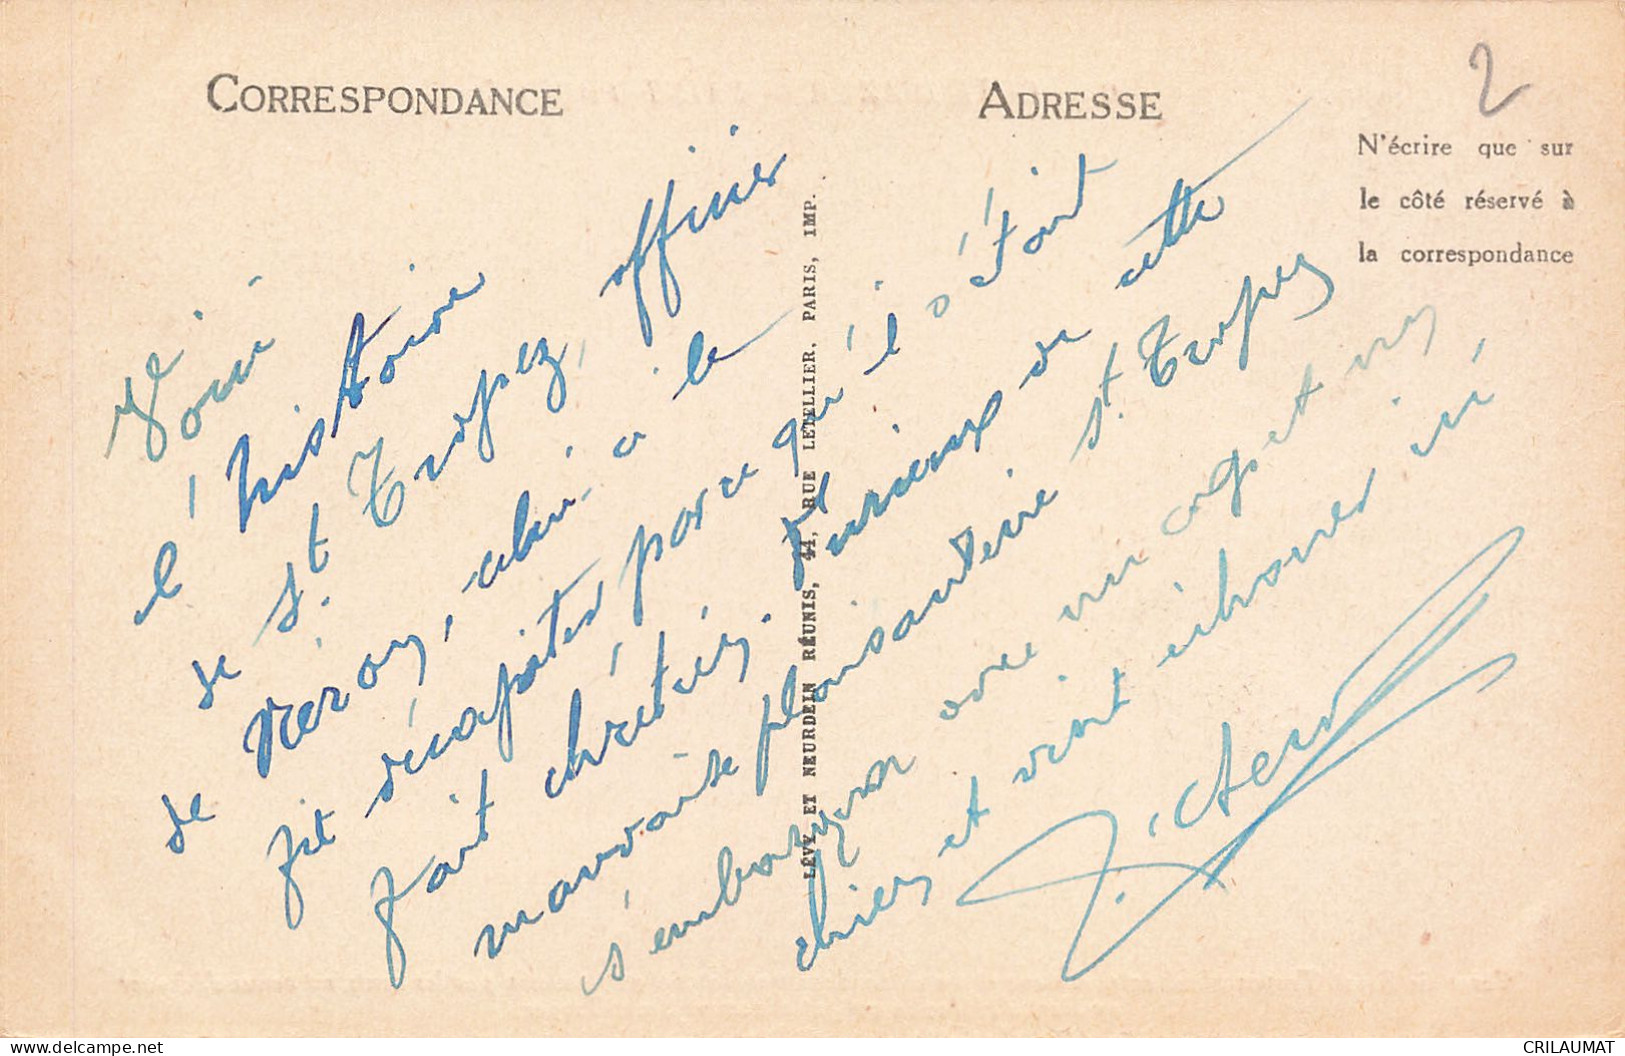 CORRESPONDANCE
ADRESSE
2
N'écrire que sur
le côté réservé à
la correspondance
LÉVY ET NEURDEIN RÉUNIS, 44, RUE LETELLIER, PARIS, IMP.
Voici
l'histoire
de St. Tropez, officier
de Néron, celui-ci le
fit décapiter parce qu'il s'était
fait chrétien. Furieux de cette
mauvaise plaisanterie St. Tropez
s'embarqua avec un coq et un
chien et vint échouer ici
CRILAUMAT